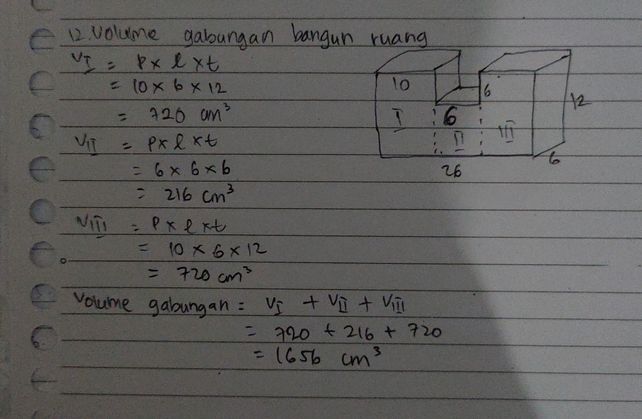 12. Volume gabungan bangun ruang
VI = p x l x t
= 10 x 6 x 12
= 720 cm³
VII = p x l x t
= 6 x 6 x 6
= 216 cm³
VIII = p x l x t
= 10 x 6 x 12
= 720 cm³
Volume gabungan = VI + VII + VIII
= 720 + 216 + 720
= 1656 cm³
10
6
12
I
6
II
III
26
6